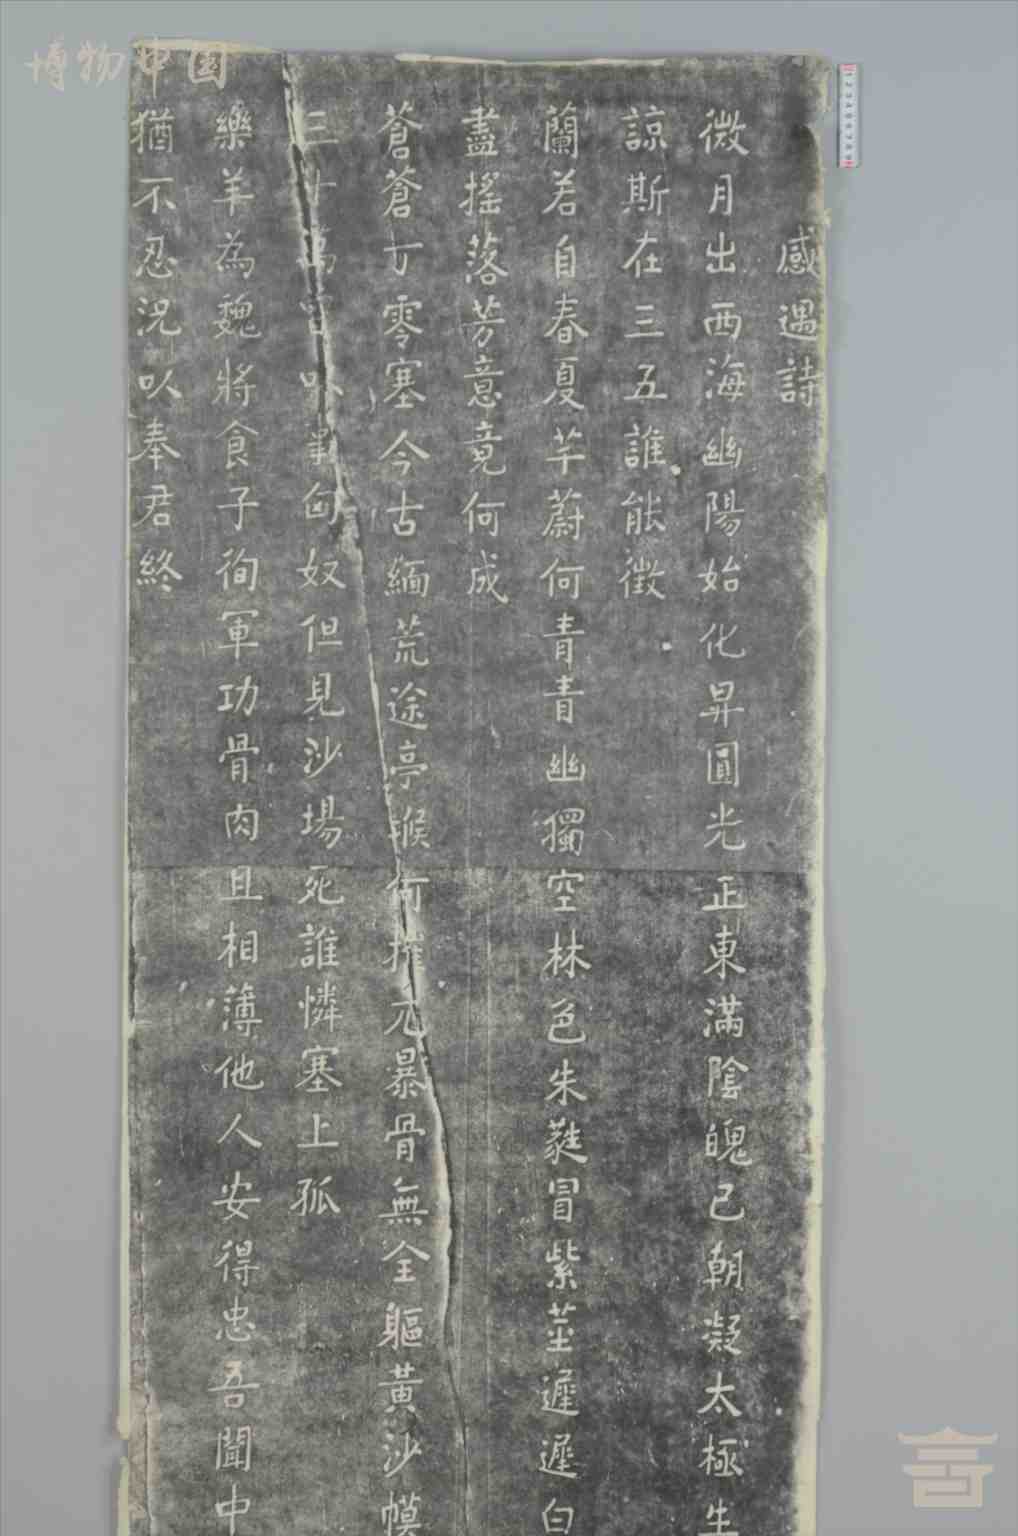 博物中国
感遇詩
微月出西海幽陽始化昇圓光正東滿陰魄已朝凝太極生
諒斯在三五誰能徵
蘭若自春夏芊蔚何青青幽獨空林色朱蕤冒紫莖遲遲白
盡搖落芳意竟何成
蒼蒼丁零塞今古緬荒途亭堠何摧兀暴骨無全軀黃沙幙
三十萬曾以事匈奴但見沙場死誰憐塞上孤
樂羊為魏將食子徇軍功骨肉且相薄他人安得忠吾聞中
猶不忍況以奉君終